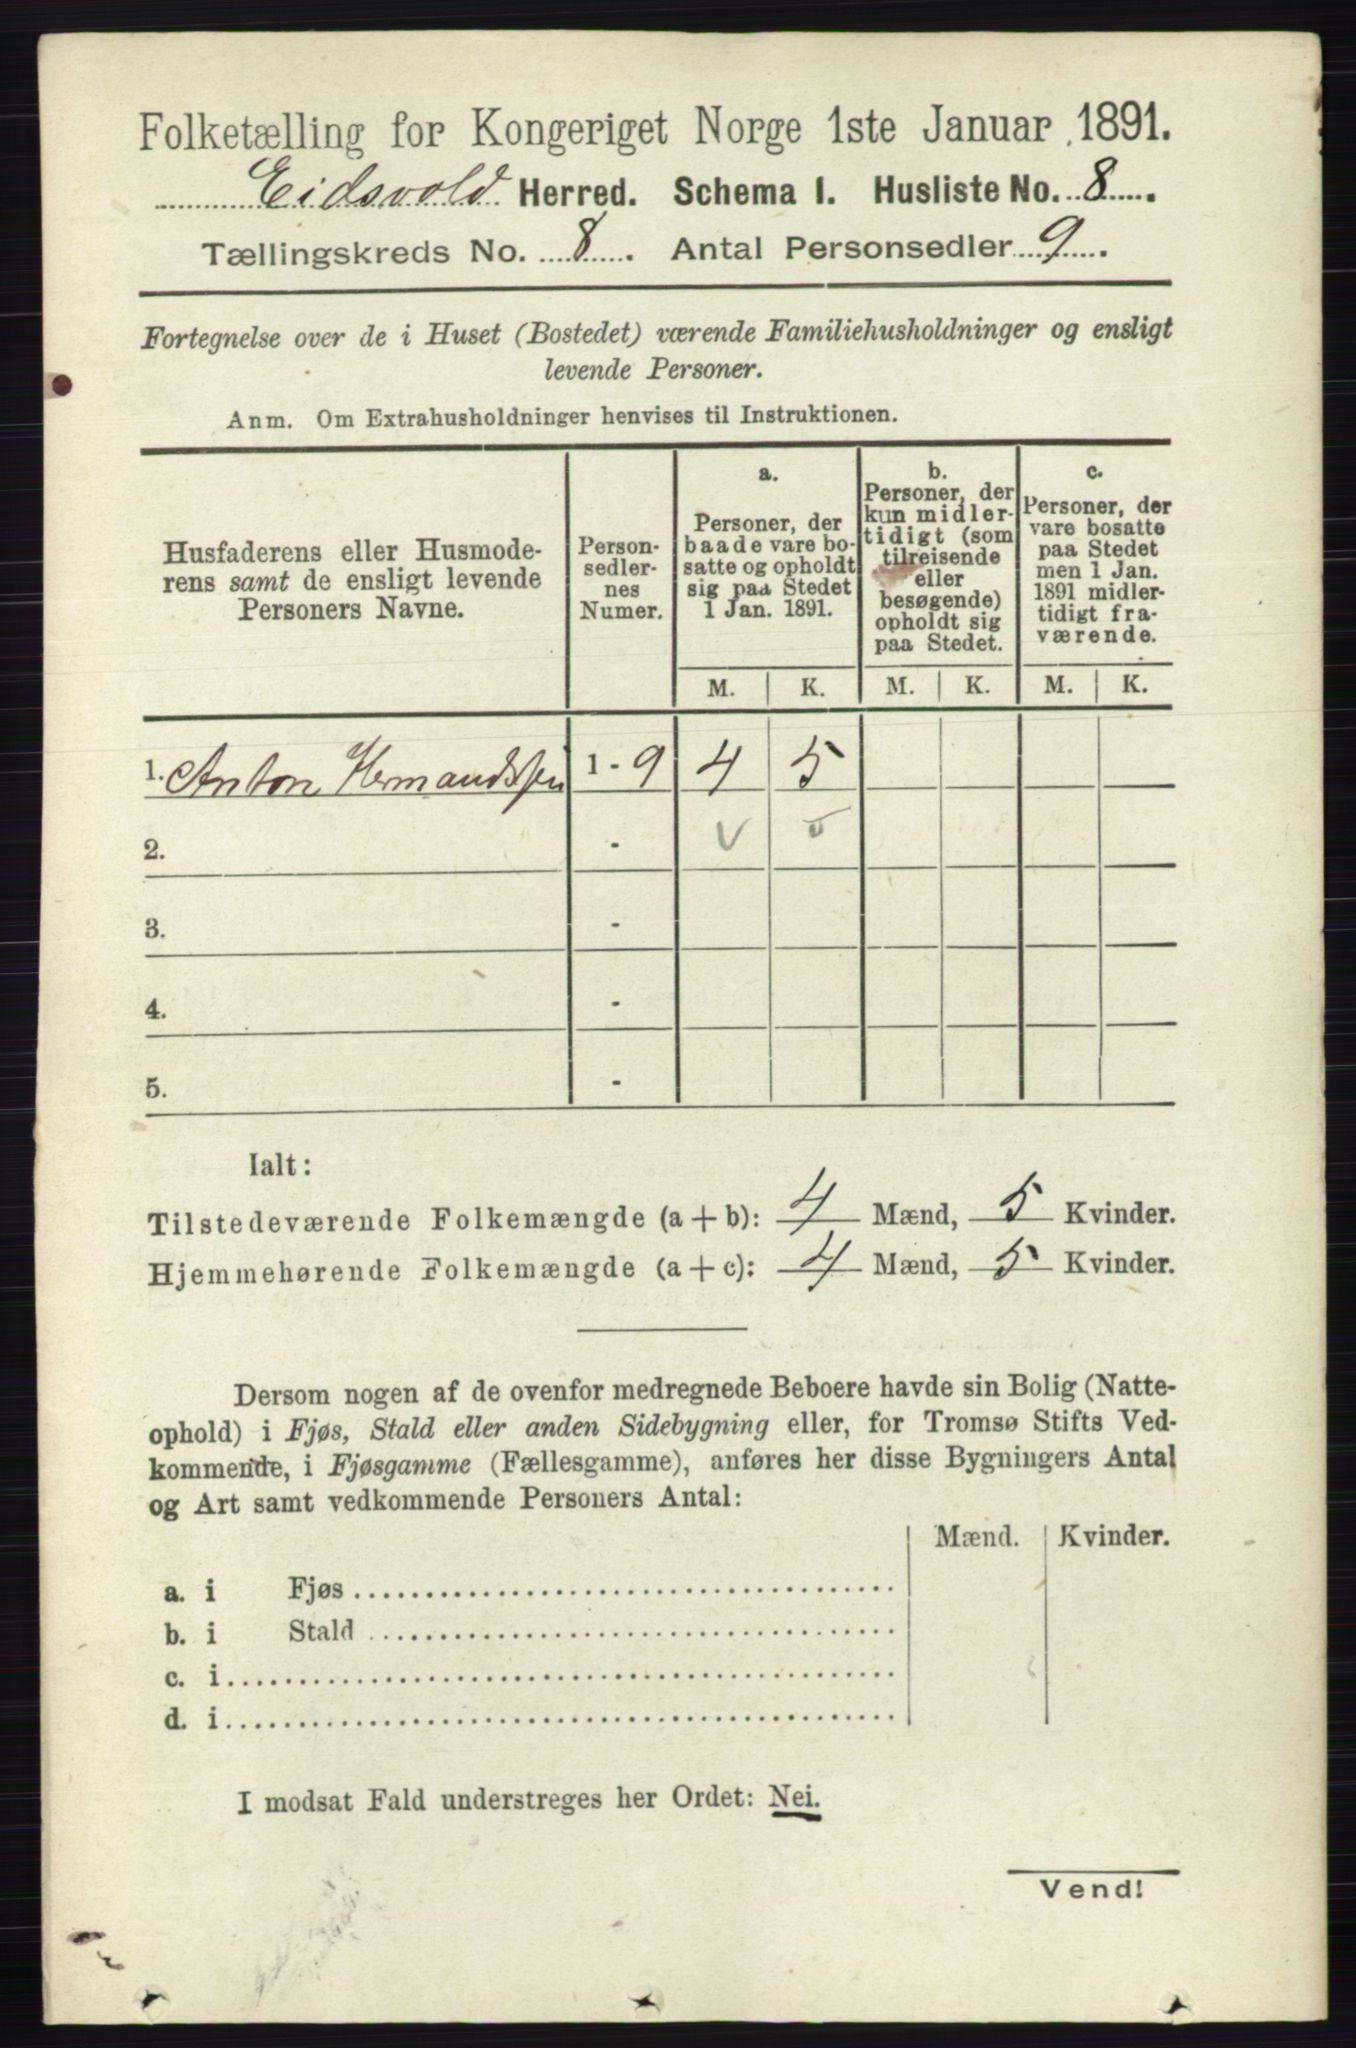 Folketælling for Kongeriget Norge 1ste Januar 1891.
Eidsvold Herred. Schema I. Husliste No. 8.
Tællingskreds No. 8. Antal Personsedler 9.
Fortegnelse over de i Huset (Bostedet) værende Familiehusholdninger og ensligt
levende Personer.
Anm. Om Extrahusholdninger henvises til Instruktionen.
Husfaderens eller Husmode-
rens samt de ensligt levende
Personers Navne.
Person-
sedler-
nes
Numer.
a.
Personer, der
baade vare bo-
satte og opholdt
sig paa Stedet
1 Jan. 1891.
b.
Personer, der
kun midler-
tidigt (som
tilreisende
eller
besøgende)
opholdt sig
paa Stedet.
c.
Personer, der
vare bosatte
paa Stedet
men 1 Jan.
1891 midler-
tidigt fra-
værende.
M. K. M. K. M. K.
1. Anton Hermandssen 1 - 9 4 5
2. -
3. -
4. -
5. -
Ialt:
Tilstedeværende Folkemængde (a + b): 4 Mænd, 5 Kvinder.
Hjemmehørende Folkemængde (a + c): 4 Mænd, 5 Kvinder.
Dersom nogen af de ovenfor medregnede Beboere havde sin Bolig (Natte-
ophold) i Fjøs, Stald eller anden Sidebygning eller, for Tromsø Stifts Ved-
kommende, i Fjøsgamme (Fællesgamme), anføres her disse Bygningers Antal
og Art samt vedkommende Personers Antal:
Mænd. Kvinder.
a. i Fjøs
b. i Stald
c. i
d. i
I modsat Fald understreges her Ordet: Nei.
Vend!